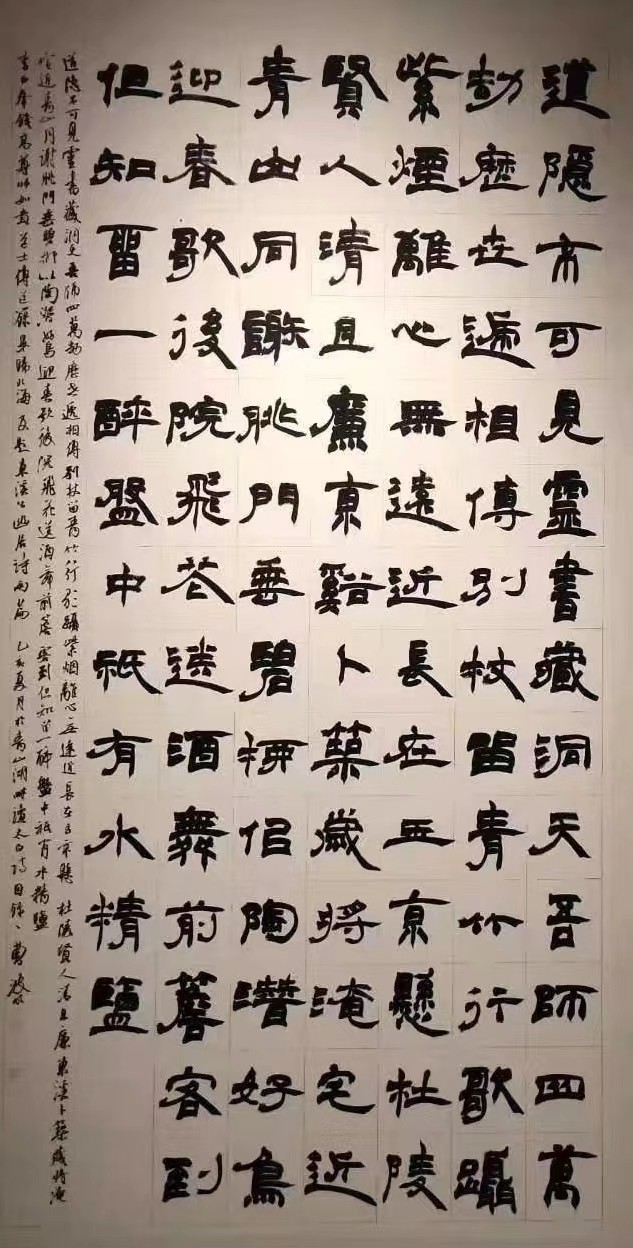 道隱不可見靈書藏洞天吾師四萬
劫歷世遞相傳別杖留青竹行歌躡
紫煙離心無遠近長在玉京懸杜陵
賢人清且廉東谿卜築歲將淹宅近
青山同謝朓門垂碧柳佀陶潛好鳥
迎春歌後院飛花送酒舞前簷客到
但知留一醉盤中祇有水精鹽
道隐不可見靈書藏洞天吾師四萬劫歷世遞相傳別杖留青竹行歌躡紫烟離心無遠近長在玉京懸 杜陵賢人清且廉東溪卜築歲將淹
宅近青山同謝朓門垂碧柳似陶潛好鳥迎春歌後院飛花送酒舞前簷客到但知留一醉盤中祇有水精鹽
李白奉餞高尊師如貴道士傳道籙畢歸北海及題東溪公幽居詩兩篇 乙亥夏月於青山湖畔讀太白詩 曹